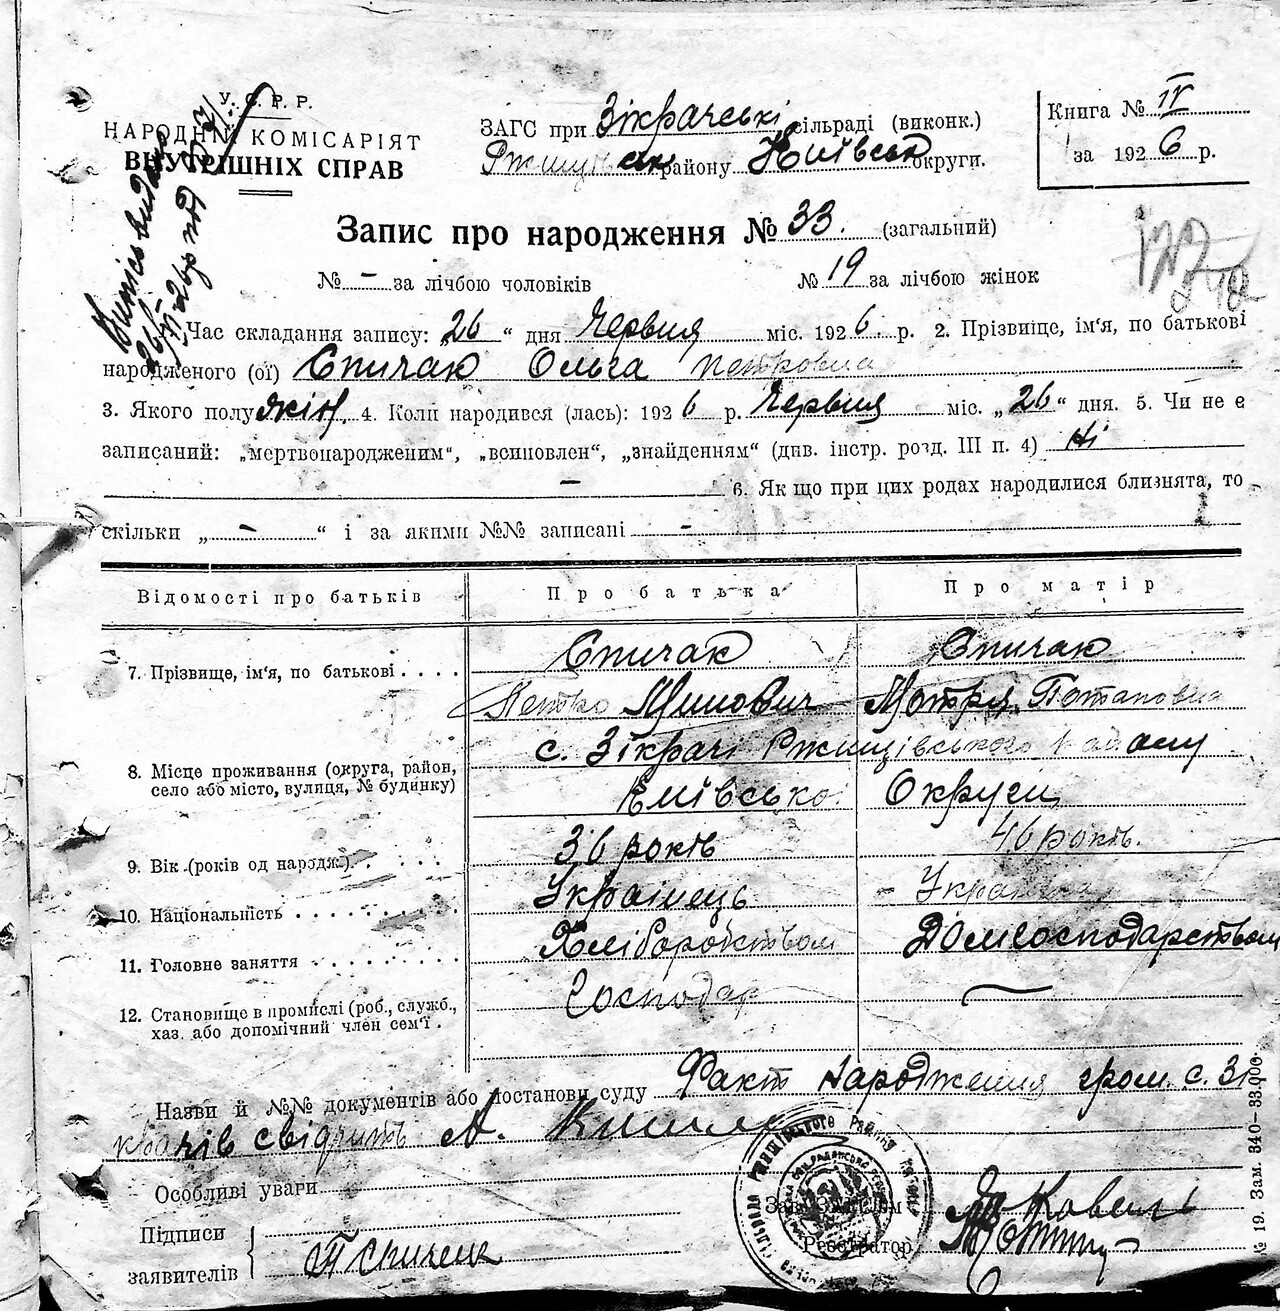 У. С. Р. Р.
НАРОДНІЙ КОМІСАРІЯТ
ВНУТРІШНІХ СПРАВ
ЗАГС при Зікрачські сільраді (виконк.)
Ржищівськ району Київськ округи.
Книга № IV
за 1926 р.
Запис про народження № 33. (загальний)
№ - за лічбою чоловіків № 19 за лічбою жінок
Час складання запису: „26“ дня Червня міс. 1926 р. 2. Прізвище, ім'я, по батькові
народженого (ої) Спичак Ольга Петровна
3. Якого полу жін. 4. Коли народився (лась): 1926 р. Червня міс. „26“ дня. 5. Чи не є
записаний: „мертвонародженим“, „всиновлен“, „знайденням“ (див. інстр. розд. III п. 4) Ні
- 6. Як що при цих родах народилися близнята, то
скільки „ - “ і за якими №№ записані -
Відомості про батьків Про батька Про матір
7. Прізвище, ім'я, по батькові Спичак Спичак
Петро Минович Мотря Потаповна
8. Місце проживання (округа, район, с. Зікрачі Ржищівського Району
село або місто, вулиця, № будинку) Київсько Округи
9. Вік (років од народж.) 36 років 46 років.
10. Національність Українець Українка
11. Головне заняття Хліборобством Домгосподарством
12. Становище в промислі (роб., служб., Господар
хаз. або допомічний член сем'ї.
Назви й №№ документів або постанови суду Факт народження гром. с. Зі
крачів свідчить А.
Особливі уваги
Підписи
заявителів
Зав. ЗАГС'ом
Реєстратор
№ 19. Зам. 340—33.000